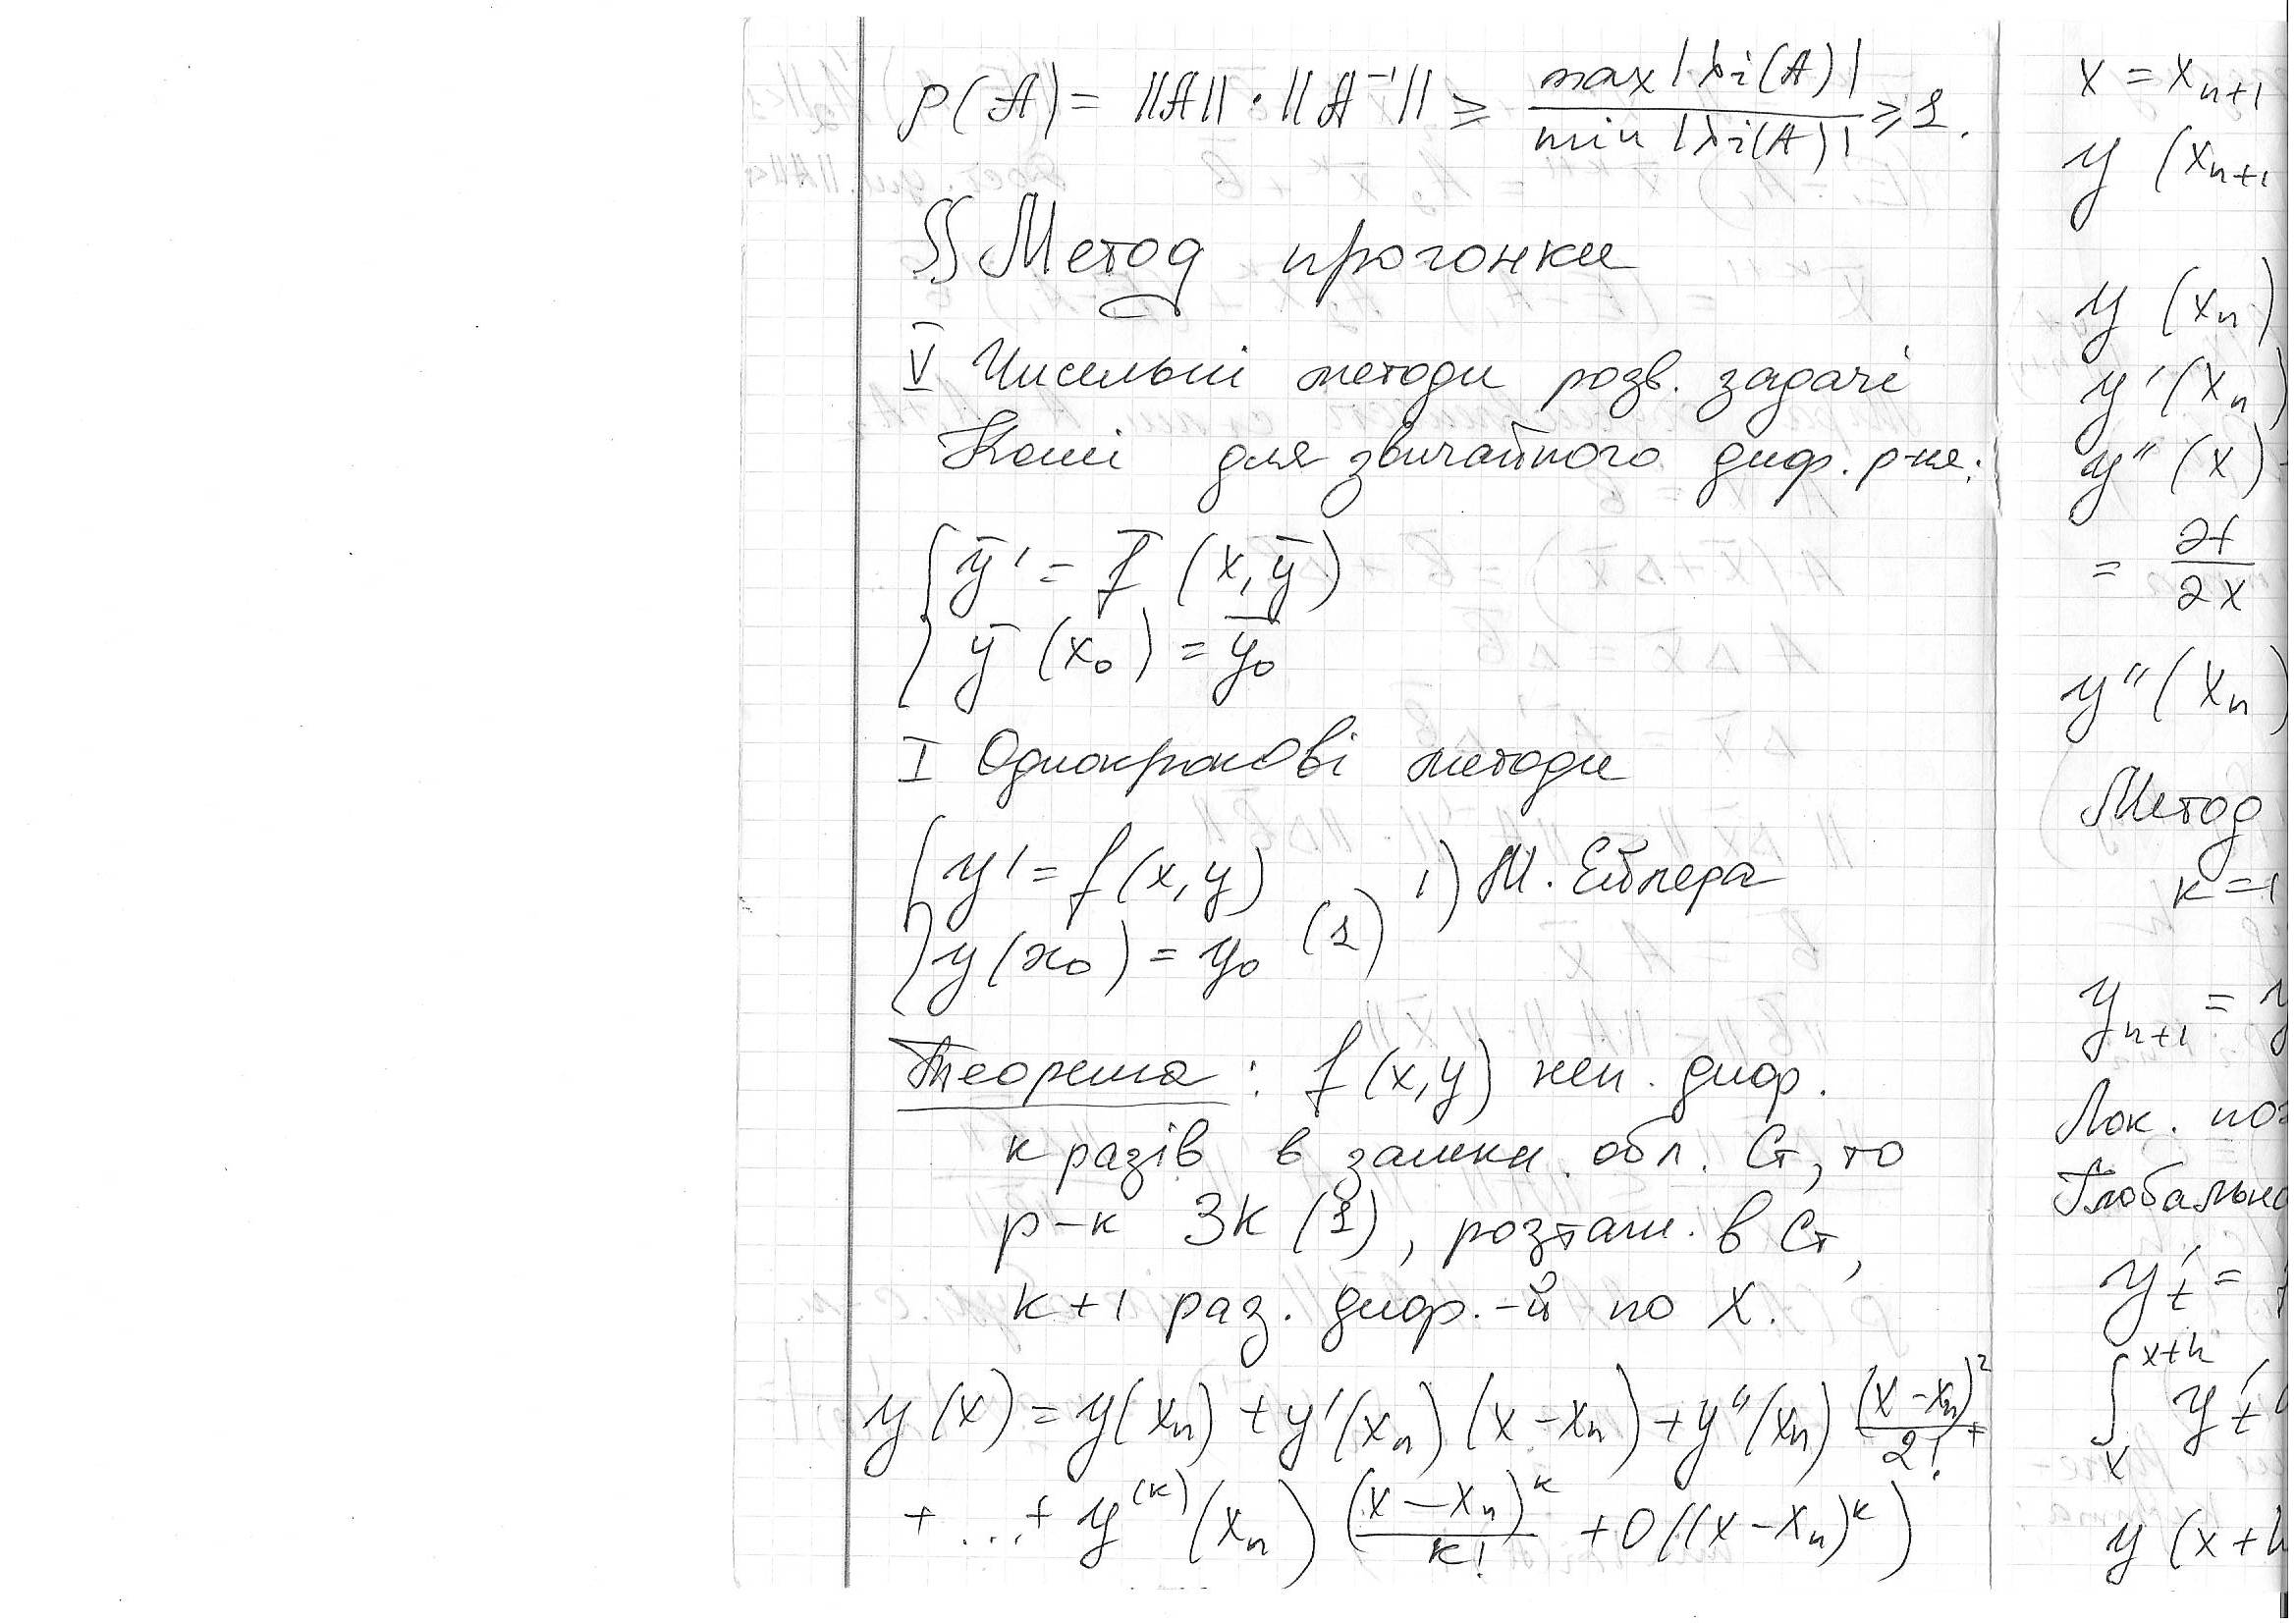 ρ(A) = ||A|| · ||A⁻¹|| ≥ max |λi(A)| / min |λi(A)| ≥ 1.
§§ Метод прогонки
V Чисельні методи розв. задачі
Коші для звичайного диф. р-ня:
{ ȳ' = f̄ (x, ȳ)
ȳ (x₀) = ȳ₀
I Однокрокові методи
{ y' = f(x, y) 1) М. Ейлера
y(x₀) = y₀ (1)
Теорема: f(x,y) неп. диф.
к разів в замкн. обл. G, то
р-к ЗК (1), розташ. в G,
к+1 раз. диф.-й по x.
y(x) = y(xₙ) + y'(xₙ)(x - xₙ) + y''(xₙ) (x - xₙ)² / 2! +
+ ... + y⁽ᵏ⁾(xₙ) (x - xₙ)ᵏ / k! + O((x - xₙ)ᵏ)
x = xₙ₊₁
y (xₙ₊₁
y (xₙ)
y' (xₙ)
y'' (x)
= ∂f / ∂x
y'' (xₙ)
Метод
к = 1
yₙ₊₁ =
Лок.
y't =
∫ₓˣ⁺ʰ y't
y (x + h